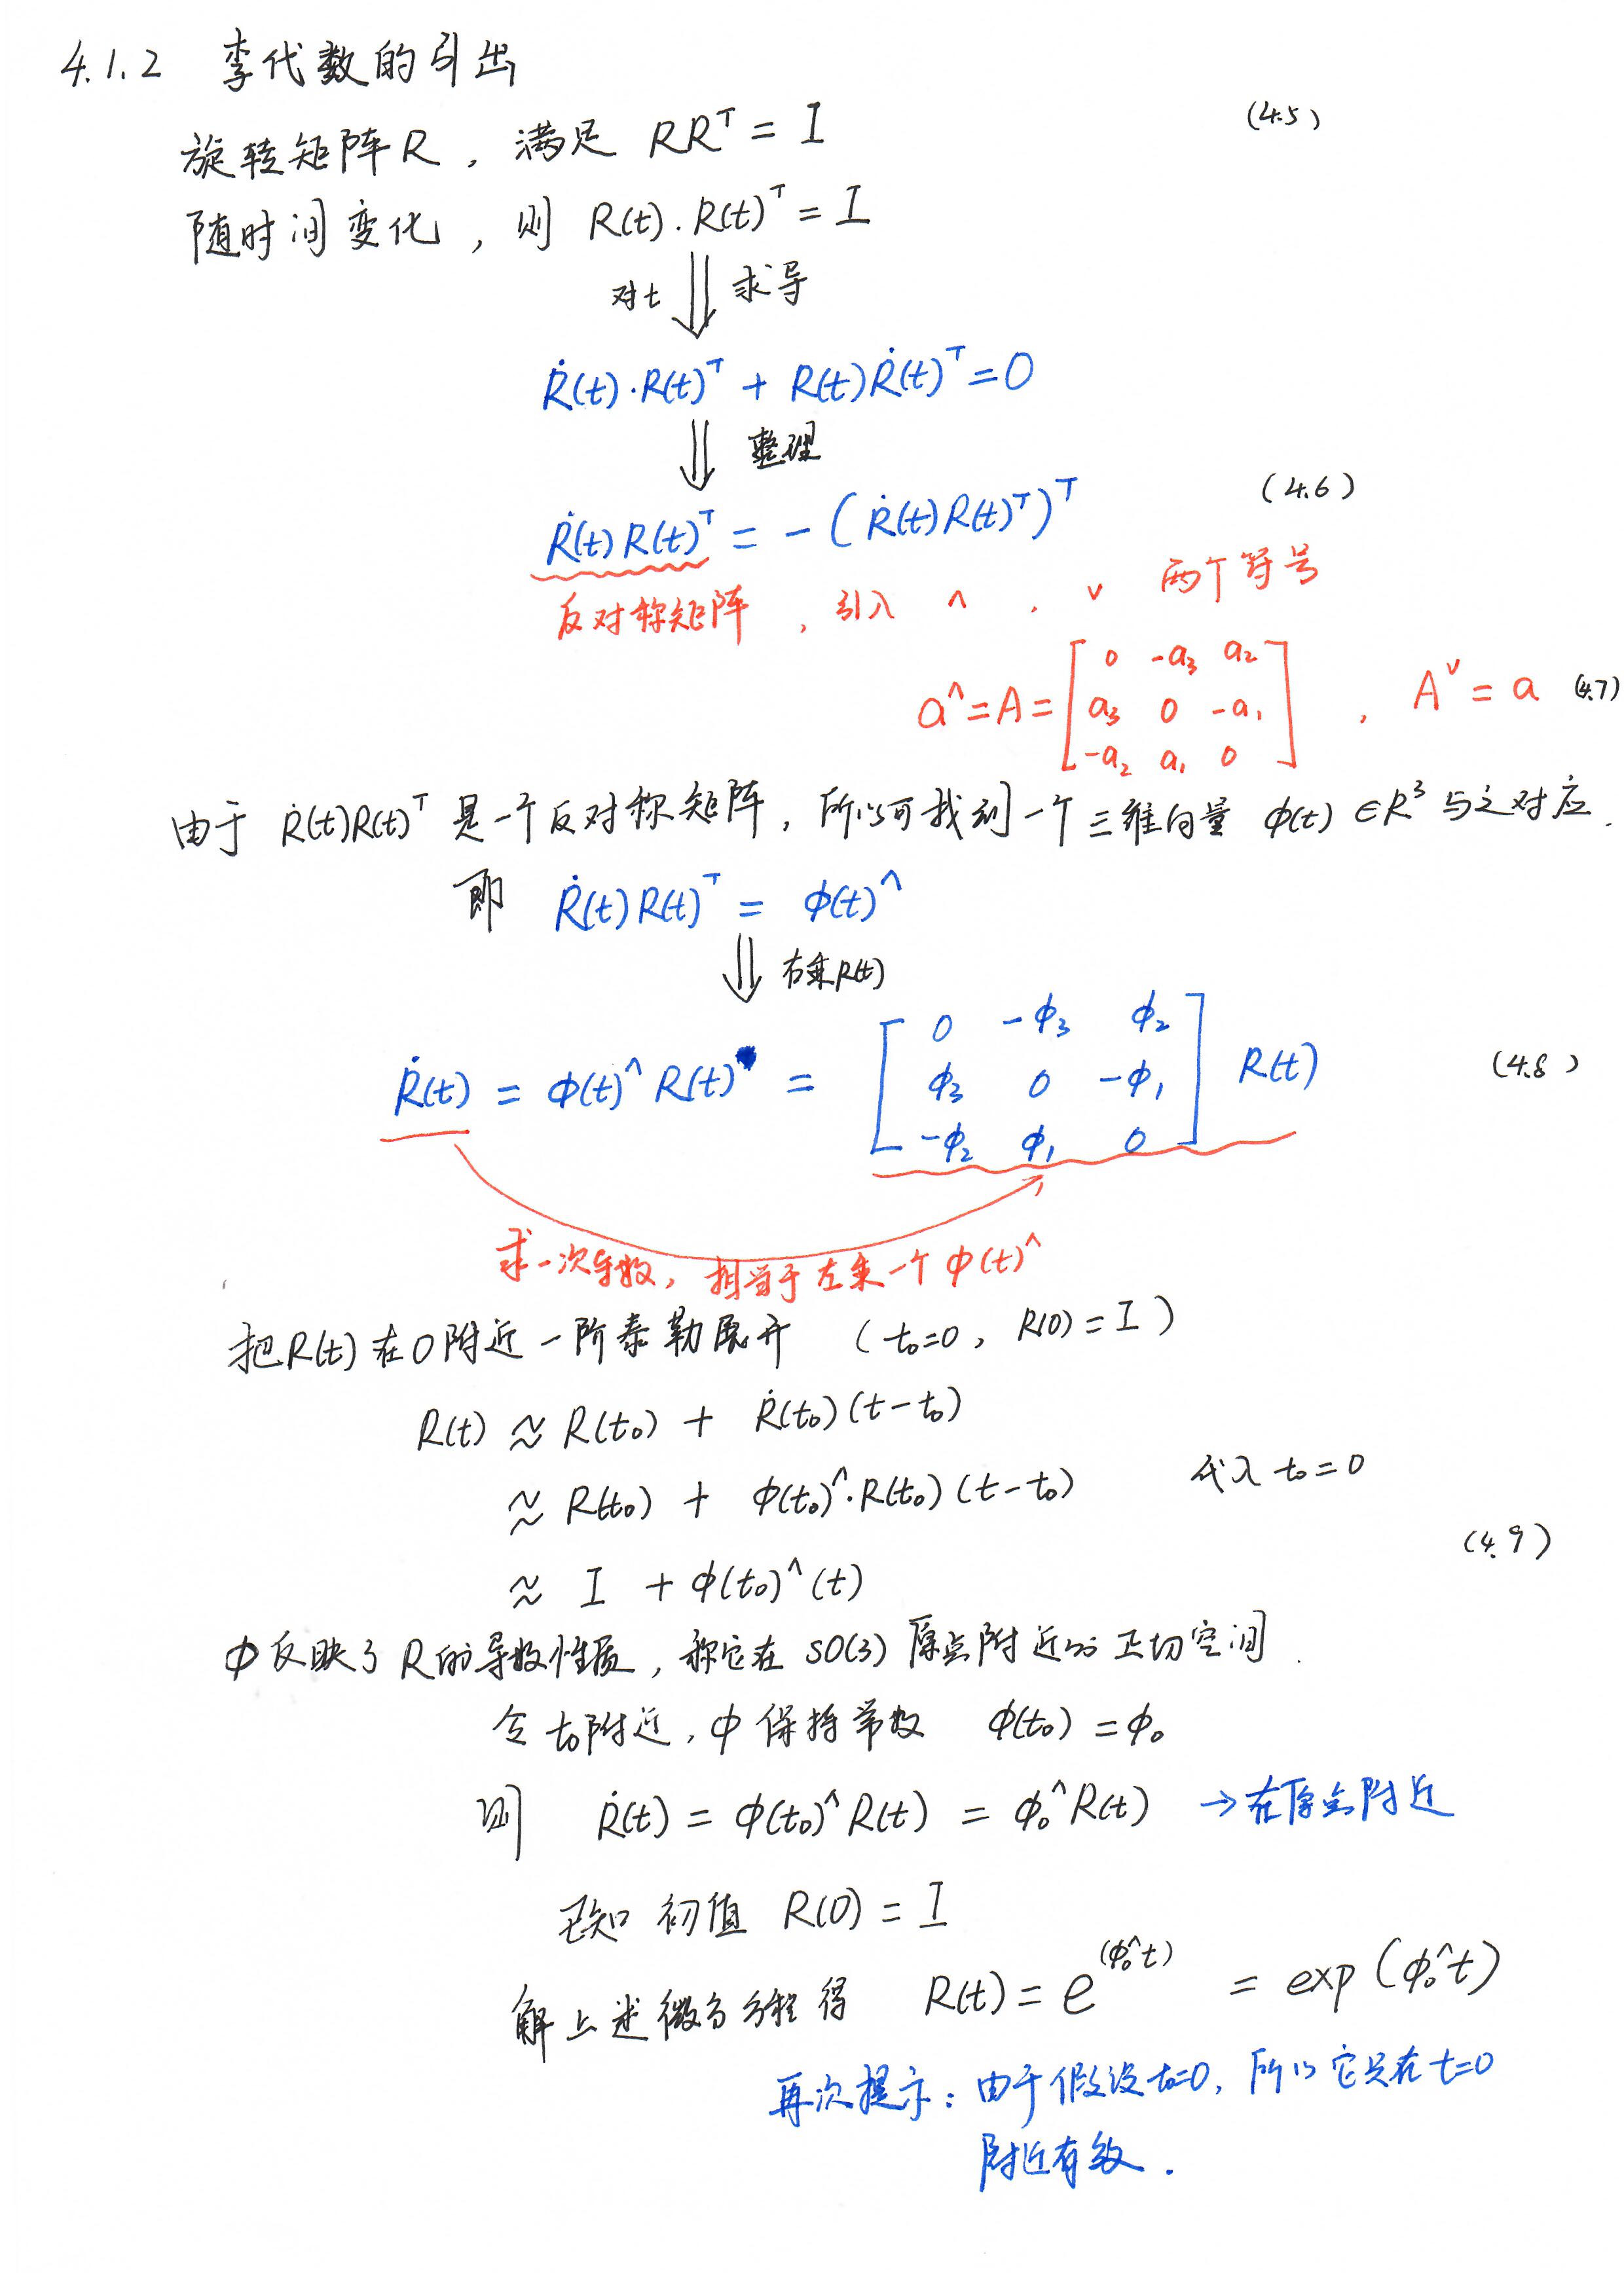 4.1.2 李代数的引出
旋转矩阵R，满足 RRᵀ = I (4.5)
随时间变化，则 R(t).R(t)ᵀ = I
对t ⇓ 求导
Ṙ(t)·R(t)ᵀ + R(t)Ṙ(t)ᵀ = 0
⇓ 整理
Ṙ(t)R(t)ᵀ = -(Ṙ(t)R(t)ᵀ)ᵀ (4.6)
反对称矩阵，引入 ∧ , ∨ 两个符号
a^ = A = [ 0 -a₃ a₂
a₃ 0 -a₁
-a₂ a₁ 0 ] , A^∨ = a (4.7)
由于 Ṙ(t)R(t)ᵀ 是一个反对称矩阵，所以可找到一个三维向量 ϕ(t) ∈R³ 与之对应.
即 Ṙ(t)R(t)ᵀ = ϕ(t)^
⇓ 右乘R(t)
Ṙ(t) = ϕ(t)^R(t) = [ 0 -ϕ₃ ϕ₂
ϕ₃ 0 -ϕ₁
-ϕ₂ ϕ₁ 0 ] R(t) (4.8)
求一次导数，相当于左乘一个 ϕ(t)^
把R(t)在0附近一阶泰勒展开 (t₀=0, R(0)=I)
R(t) ≈ R(t₀) + Ṙ(t₀)(t-t₀)
≈ R(t₀) + ϕ(t₀)^·R(t₀)(t-t₀) 代入 t₀=0
≈ I + ϕ(t₀)^(t) (4.9)
ϕ反映了R的导数性质，称它在 SO(3) 原点附近的正切空间.
令 t₀附近，ϕ保持常数 ϕ(t₀) = ϕ₀
则 Ṙ(t) = ϕ(t₀)^R(t) = ϕ₀^R(t) → 在原点附近
已知 初值 R(0) = I
解上述微分方程得 R(t) = e^(ϕ₀^t) = exp(ϕ₀^t)
再次提示：由于假设t₀=0，所以它只在t=0
附近有效.